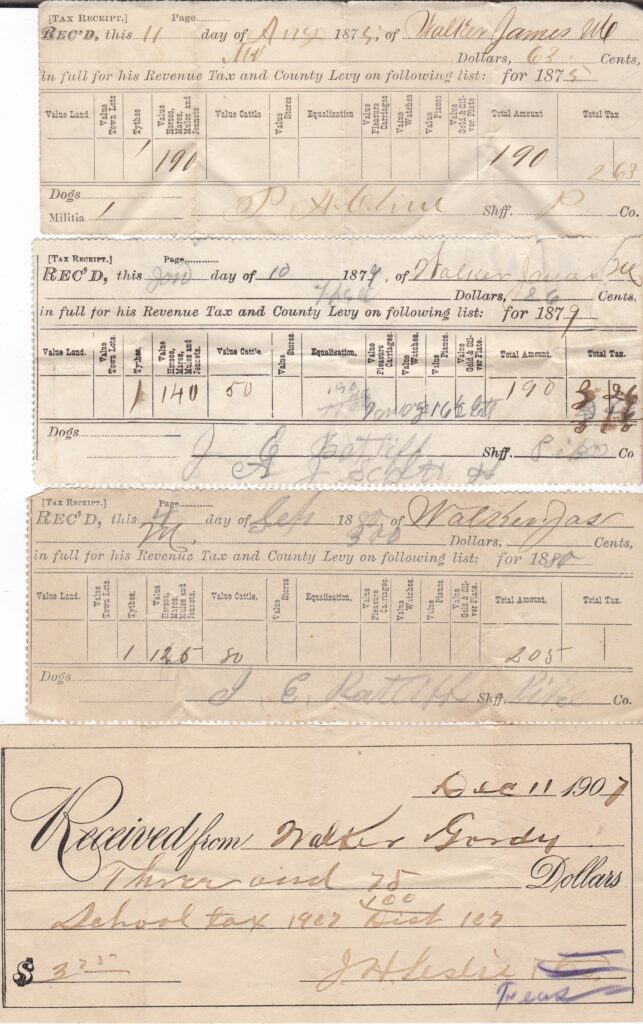 [TAX RECEIPT.] Page
REC'D, this 11 day of Aug 1875, of Walker James M
Dollars, 63 Cents,
in full for his Revenue Tax and County Levy on following list: for 1875
Value Land Value Town Lots Tythes Value Horses, Mares, Mules and Jennets Value Cattle Value Stores Equalization Value Pleasure Carriages Value Watches Value Pianos Value Gold & Silver Plate Total Amount Total Tax
1 190 190 2 63
Dogs
Militia 1 Shff. P Co.
[TAX RECEIPT.] Page
REC'D, this Jan day of 10 1879, of Walker James
Dollars, 86 Cents,
in full for his Revenue Tax and County Levy on following list: for 1879
Value Land. Value Town Lots. Tythes. Value Horses, Mares, Mules and Jennets. Value Cattle. Value Stores. Equalization. Value Pleasure Carriages. Value Watches. Value Pianos. Value Gold & Silver Plate. Total Amount. Total Tax.
1 140 50 190
Dogs J G Ratliff Shff. Pike Co.
[TAX RECEIPT.] Page
REC'D, this 4 day of Feb 1880, of Walker Jas
M. 300 Dollars, Cents,
in full for his Revenue Tax and County Levy on following list: for 1880
Value Land. Value Town Lots. Tythes. Value Horses, Mares, Mules and Jennets. Value Cattle. Value Stores Equalization. Value Pleasure Carriages. Value Watches. Value Pianos Value Gold & Silver Plate. Total Amount. Total Tax.
1 125 80 205
Dogs J E Ratliff Shff. Pike Co.
Dec 11 1907
Received from Walker Gordy
Three and 75/100 Dollars
School tax 1907 Dist 107
$ 3 75 J H Leslie
Treas